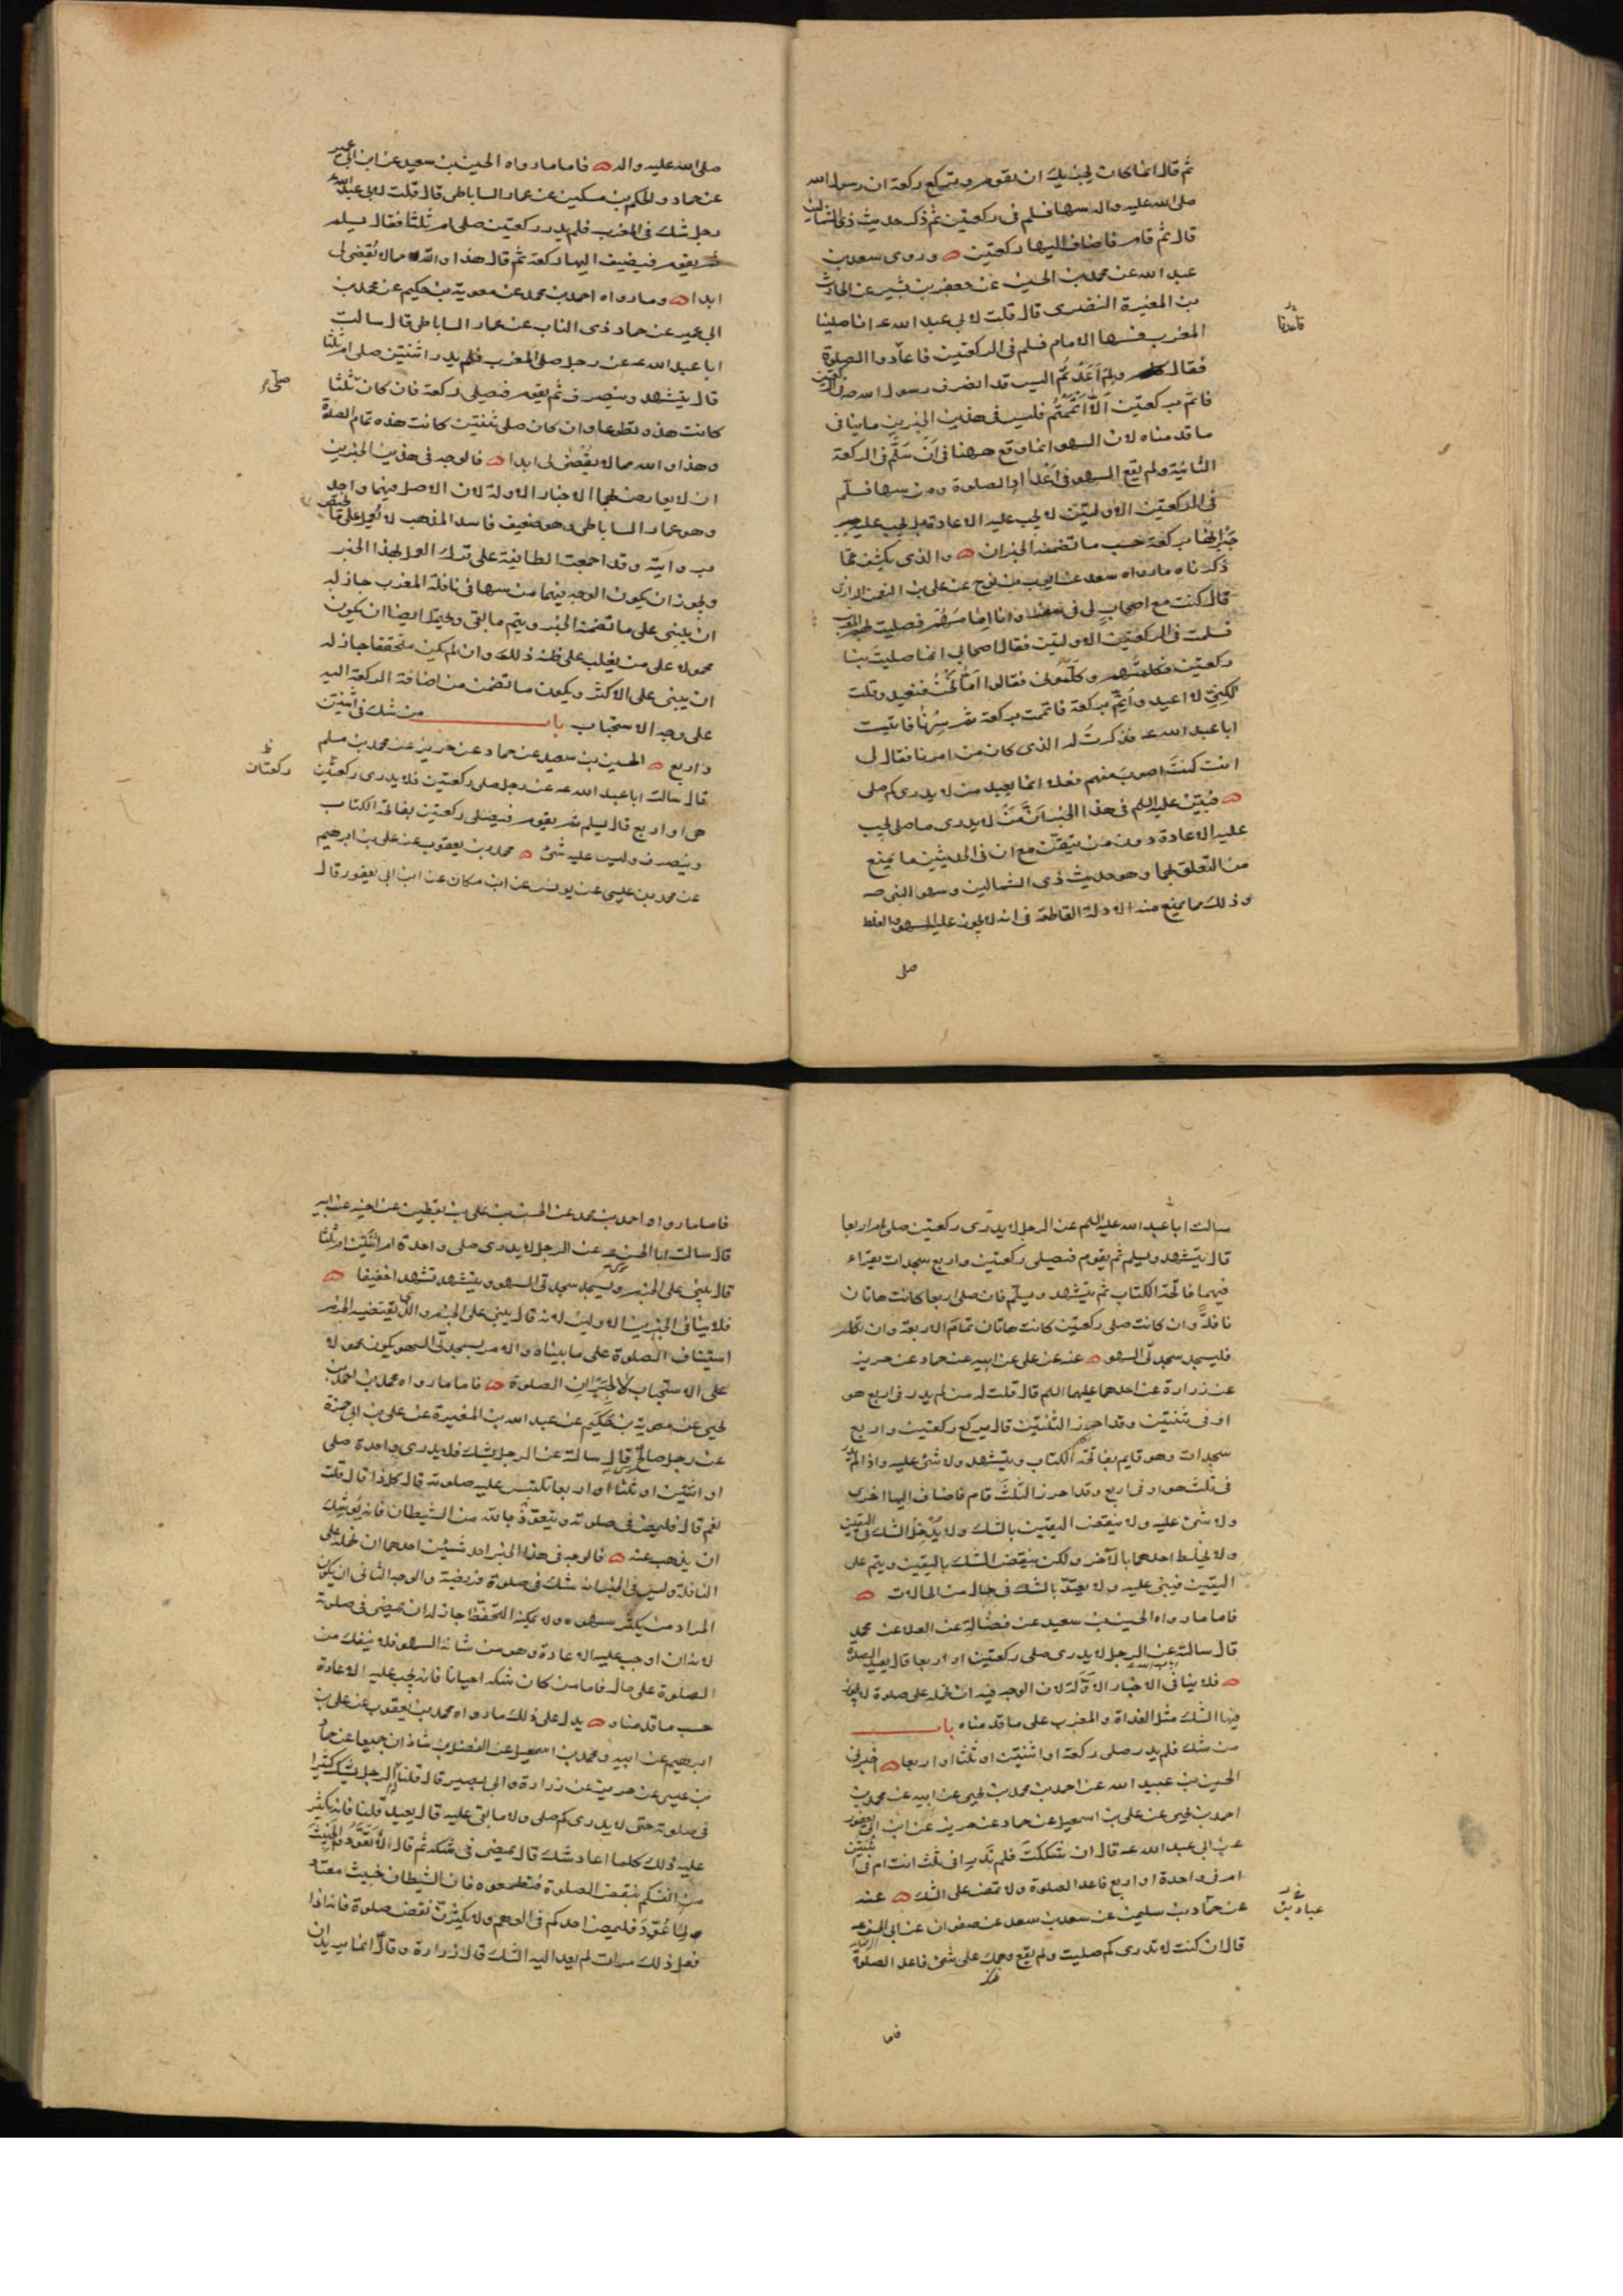 ثم قال انما كان يجزيك ان تقوم وتركع ركعة ان رسول الله
صلى الله عليه واله سها فسلم في ركعتين ثم ذكر حديث ذي الشمالين
قال ثم قام فاضاف اليها ركعتين ه وروى سعد بن
عبد الله عن محمد بن الحسين عن جعفر بن بشير عن الحارث
بن المغيرة النضرى قال قلت لابي عبد الله عه انا صلينا
المغرب فسها الامام فسلم في الركعتين فاعادوا الصلوة
فقال ولم اعدتم اليس قد انصرف رسول الله صه في الركعتين
فاتم بركعتين الا اتممتم فليس في هذين الخبرين ما ينافي
ما قدمناه لان السهو انما وقع ههنا في ان سلم في الركعة
الثانية ولم يقع السهو في اعداد الصلوة ومن سها فسلم
في الركعتين الاولتين لا يجب عليه الاعادة بل يجب عليه
جبرانها بركعة حسب ما تضمنه الخبران ه والذي يكشف عما
ذكرناه ما رواه سعد عن ايوب بن نوح عن علي بن النعمن الرازي
قال كنت مع اصحاب لي في سفر وانا امامهم فصليت بهم المغرب
فسلمت في الركعتين الاولتين فقال اصحابي انما صليت بنا
ركعتين فكلمتهم وكلموني فقالوا اما نحن فنعيد وقلت
لكني لا اعيد واتم بركعة فاتممت بركعة ثم سرنا فاتيت
ابا عبد الله عه فذكرت له الذي كان من امرنا فقال لي
انت كنت اصوب منهم فعلا انما يعيد من لا يدرى كم صلى
ه فبين عليه السلم في هذا الخبر ان من لا يدرى ما صلى يجب
عليه الاعادة دون من تيقن مع ان في الحديثين ما يمنع
من التعلق بهما وهو حديث ذي الشمالين وسهو النبي صه
وذلك مما يمنع منه الادلة القاطعة في انه لا يجوز عليه السهو والغلط
صلى
فاعدنا
صلى الله عليه واله ه فاما ما رواه الحسين بن سعيد عن ابن ابي عمير
عن حماد والحكم بن مسكين عن عمار الساباطي قال قلت لابي عبد الله ع
رجل شك في المغرب فلم يدر ركعتين صلى ام ثلثا فقال يسلم
ثم يقوم فيضيف اليها ركعة ثم قال هذا والله مما لا يقضى لي
ابدا ه وما رواه احمد بن محمد عن معوية بن حكيم عن محمد بن
ابي عمير عن حماد ذي الناب عن عمار الساباطي قال سالت
ابا عبد الله عه عن رجل صلى المغرب فلم يدر اثنتين صلى ام ثلثا
قال يتشهد وينصرف ثم يقوم فيصلى ركعة فان كان ثلثا
كانت هذه تطوعا وان كان صلى ثنتين كانت هذه تمام الصلوة
وهذا والله مما لا يقضى لي ابدا ه فالوجه في هذين الخبرين
ان لا يعارض بهما الاخبار الاولة لان الاصل فيهما واحد
وهو عمار الساباطي وهو ضعيف فاسد المذهب لا يعمل على ما يختص
بروايته وقد اجمعت الطائفة على ترك العمل بهذا الخبر
ويجوز ان يكون الوجه فيهما من سها في نافلة المغرب جاز له
ان يبنى على ما تضمنه الخبر ويتم ما بقى ويحتمل ايضا ان يكون
محمولا على من يغلب على ظنه ذلك وان لم يكن متحققا جاز له
ان يبنى على الاكثر ويكون ما تضمن من اضافة الركعة اليه
على وجه الاستحباب باب من شك في اثنتين
واربع ه الحسين بن سعيد عن حماد عن حريز عن محمد بن مسلم
قال سالت ابا عبد الله عه عن رجل صلى ركعتين فلا يدرى ركعتين
هى او اربع قال يسلم ثم يقوم فيصلى ركعتين بفاتحة الكتاب
وينصرف وليس عليه شئ ه محمد بن يعقوب عن علي بن ابرهيم
عن محمد بن عيسى عن يونس عن ابن مسكان عن ابن ابي يعفور قال
ركعتان
سالت ابا عبد الله عليه السلم عن الرجل لا يدرى ركعتين صلى ام اربعا
قال يتشهد ويسلم ثم يقوم فيصلى ركعتين واربع سجدات يقراء
فيهما فاتحة الكتاب ثم يتشهد ويسلم فان صلى اربعا كانت هاتان
نافلة وان كانت صلى ركعتين كانت هاتان تمام الاربعة وان تكلم
فليسجد سجدتى السهو ه عنه عن علي عن ابيه عن حماد عن حريز
عن زرارة عن احدهما عليهما السلم قال قلت له من لم يدر في اربع هو
او في ثنتين وقد احرز الثنتين قال يركع ركعتين واربع
سجدات وهو قايم بفاتحة الكتاب ويتشهد ولا شئ عليه واذا لم يدر
في ثلث هو او في اربع وقد احرز الثلث قام فاضاف اليها اخرى
ولا شئ عليه ولا ينقض اليقين بالشك ولا يدخل الشك في اليقين
ولا يخلط احدهما بالآخر ولكن ينقض الشك باليقين ويتم على
اليقين فيبنى عليه ولا يعتد بالشك في حال من الحالات ه
فاما ما رواه الحسين بن سعيد عن فضالة عن العلا عن محمد
قال سالته عن الرجل لا يدرى صلى ركعتين او اربعا قال يعيد الصلوة
ه فلا ينافي الاخبار الاولة لان الوجه فيه ان نحمله على صلوة لا يجوز
فيها الشك مثل الغداة والمغرب على ما قدمناه باب
من شك فلم يدر صلى ركعة او اثنتين او ثلثا او اربعا ه اخبرني
الحسين بن عبيد الله عن احمد بن محمد بن يحيى عن ابيه عن محمد بن
احمد بن يحيى عن علي بن اسمعيل عن حماد عن حريز عن ابن ابي يعفور
عن ابي عبد الله عه قال ان شككت فلم تدر افي ثلث انت ام في اثنتين
ام في واحدة او اربع فاعد الصلوة ولا تمض على الشك ه عنه
عن حماد بن سليمن عن سعد بن سعد عن صفوان عن ابي الحسن عه
قال ان كنت لا تدرى كم صليت ولم يقع وهمك على شئ فاعد الصلوة
فاما
عباد بن
فاما ما رواه احمد بن محمد عن الحسن بن علي بن يقطين عن اخيه عن ابيه
قال سالت ابا الحسن عه عن الرجل لا يدرى صلى واحدة ام اثنتين ام ثلثا
قال يبنى على الجزم ويسجد سجدتى السهو ويتشهد تشهدا خفيفا ه
فلا ينافي الخبرين الاولين لانه قال يبنى على الجزم والذي يقتضيه الجزم
استيناف الصلوة على ما بيناه والامر بسجدتى السهو يكون محمولا
على الاستحباب لا لجبران الصلوة ه فاما ما رواه محمد بن احمد بن
يحيى عن معوية بن حكيم عن عبد الله بن المغيرة عن علي بن ابي حمزة
عن رجل صالح قال سالته عن الرجل يشك فلا يدرى واحدة صلى
او اثنتين او ثلثا او اربعا تلتبس عليه صلوته قال كل ذا قال قلت
نعم قال فليمض في صلوته ويتعوذ بالله من الشيطان فانه يوشك
ان يذهب عنه ه فالوجه في هذا الخبر احد شيئين احدهما ان نحمله على
النافلة وليس في الخبر انه شك في صلوة فريضة والوجه الثاني ان يكون
المراد من يكثر سهوه ولا يمكنه التحفظ جاز له ان يمضى في صلوته
لانه ان اوجب عليه الاعادة وهو من شانه السهو فلا ينفك من
الصلوة على حال فاما من كان شكه احيانا فانه يجب عليه الاعادة
حسب ما قدمناه ه يدل على ذلك ما رواه محمد بن يعقوب عن علي بن
ابرهيم عن ابيه ومحمد بن اسمعيل عن الفضل بن شاذان جميعا عن حماد
بن عيسى عن حريز عن زرارة وابي بصير قال قلنا الرجل يشك كثيرا
في صلوته حتى لا يدرى كم صلى ولا ما بقى عليه قال يعيد قلنا فانه يكثر
عليه ذلك كلما اعاد شك قال يمضى في شكه ثم قال لا تعودوا الخبيث
من انفسكم بنقض الصلوة فتطمعوه فان الشيطان خبيث معتاد
لما عود فليمض احدكم في الوهم ولا يكثرن نقض صلوة فانه اذا
فعل ذلك مرات لم يعد اليه الشك قال زرارة وقال انما يريد ان